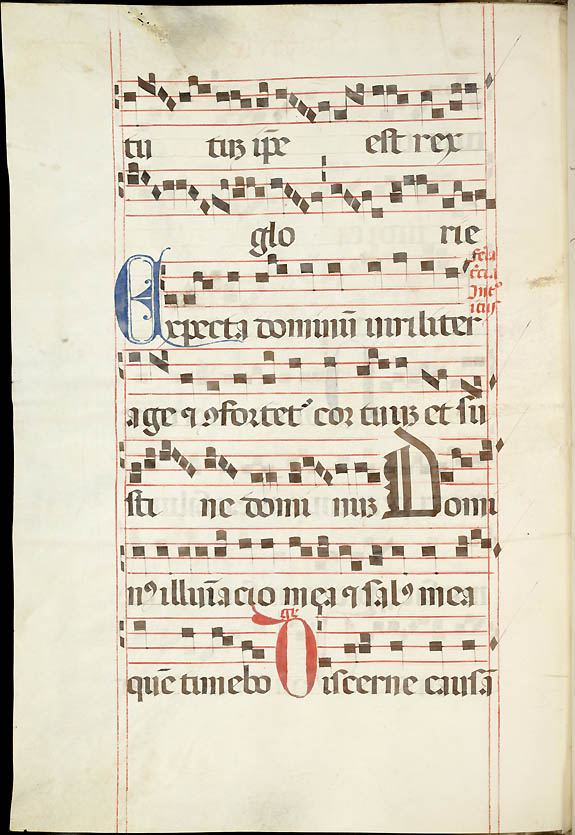 tu tuꝫ ip̄e est rex
glo rie
feria
Expecta dominū uiriliter
age ⁊ ꝯfortetˀ cor tuuꝫ et su
sti ne domi nuꝫ Domi
nꝰ illuīacio mea ⁊ salꝰ mea
quē timebo Discerne causā